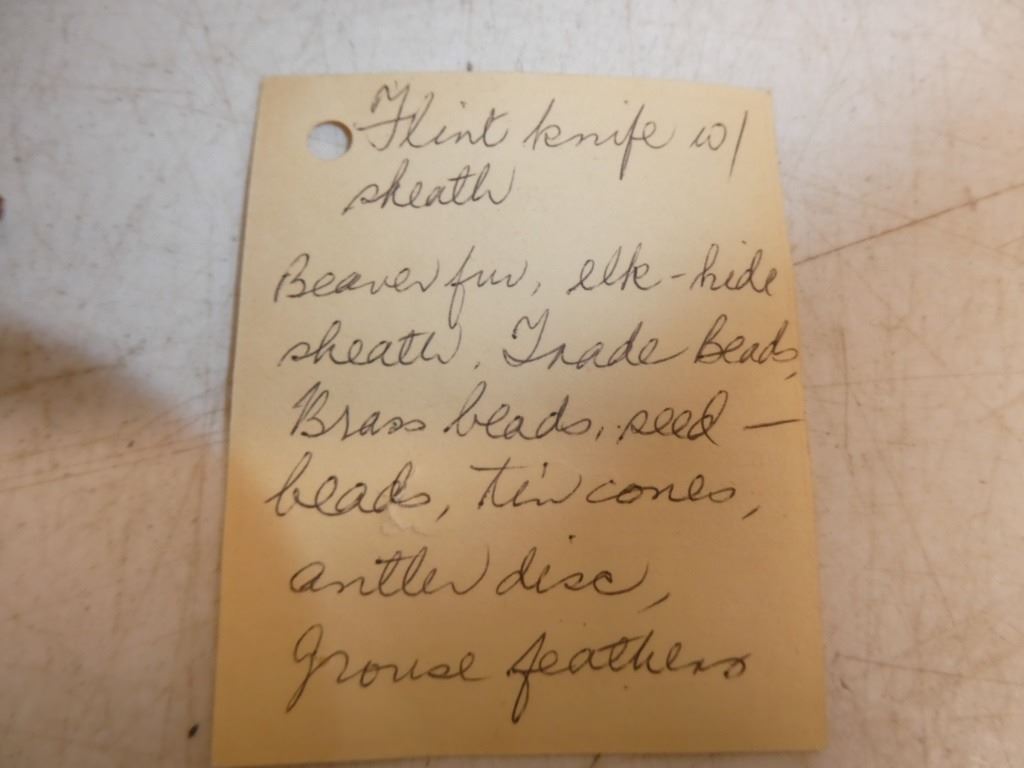 Flint knife w/
sheath
Beaver fur, elk-hide
sheath. Trade Beads,
Brass beads, seed –
beads, tin cones,
antler disc,
Grouse feathers